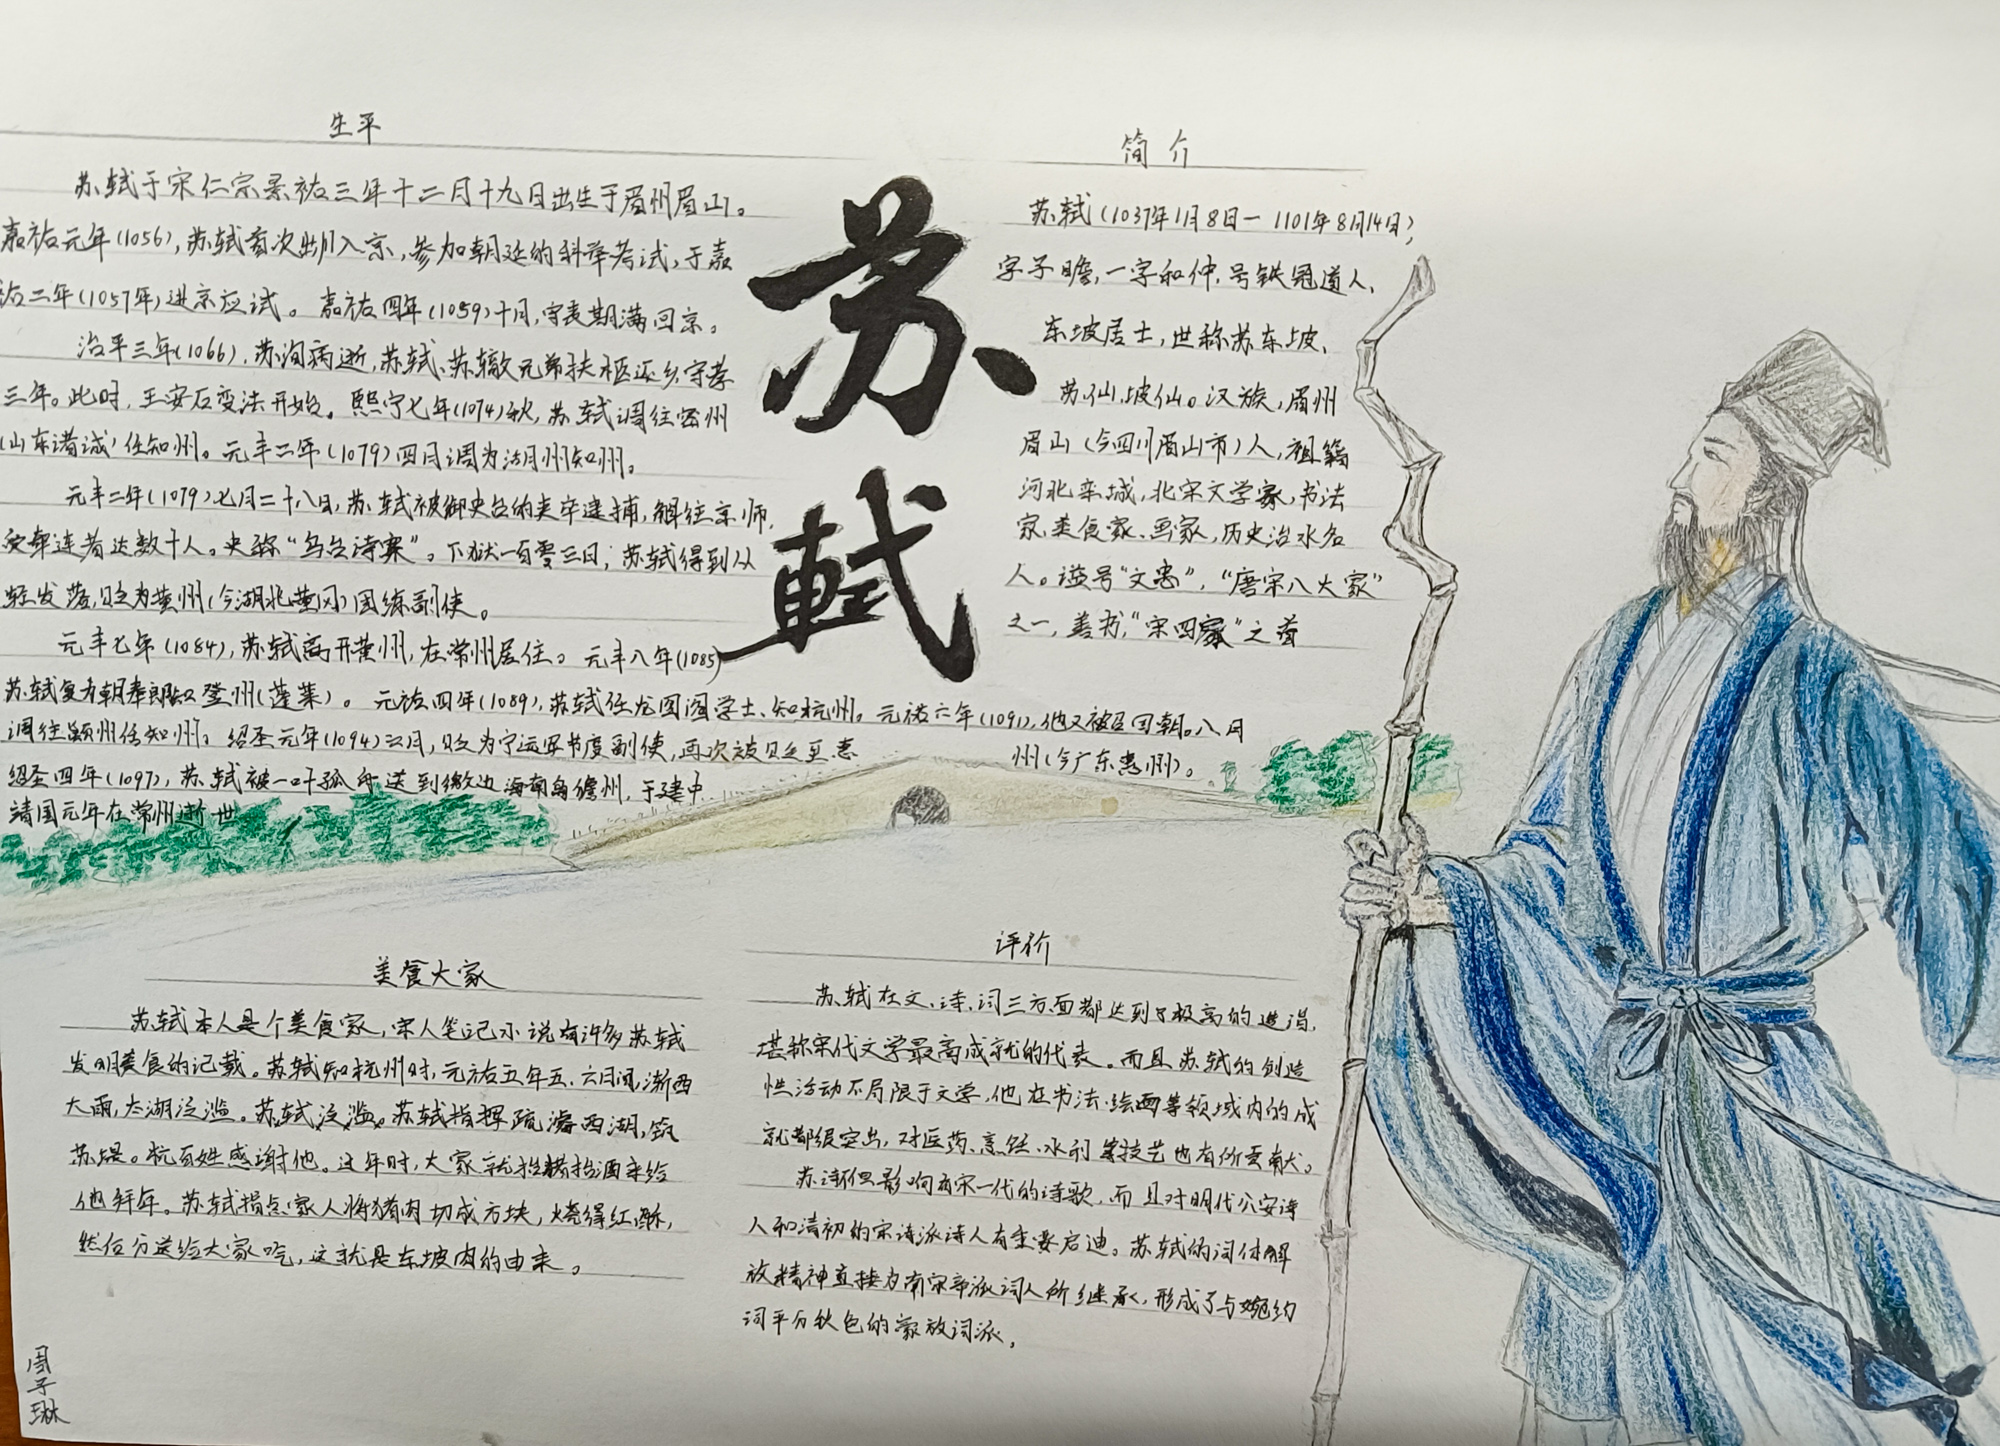 生平
苏轼于宋仁宗景祐三年十二月十九日出生于眉州眉山。
嘉祐元年(1056),苏轼首次出川入京,参加朝廷的科举考试,于嘉
祐二年(1057年)进京应试。嘉祐四年(1059)十月,守丧期满回京。
治平三年(1066),苏洵病逝,苏轼、苏辙兄弟扶柩还乡,守孝
三年。此时,王安石变法开始。熙宁七年(1074)秋,苏轼调往密州
(山东诸诚)任知州。元丰二年(1079)四月调为湖州知州。
元丰二年(1079)七月二十八日,苏轼被御史台的吏卒逮捕,解往京师,
受牵连者达数十人。史称“乌台诗案”。下狱一百零三日,苏轼得到从
轻发落,贬为黄州(今湖北黄冈)团练副使。
元丰七年(1084),苏轼离开黄州,在常州居住。元丰八年(1085)
苏轼复为朝奉郎知登州(蓬莱)。元祐四年(1089),苏轼任龙图阁学士、知杭州。元祐六年(1091),他又被召回朝。八月
调往颍州任知州。绍圣元年(1094)三月,贬为宁远军节度副使,再次被贬至惠
州(今广东惠州)。
绍圣四年(1097),苏轼被一叶孤舟送到徼边海南岛儋州,于建中
靖国元年在常州逝世
苏
轼
简介
苏轼(1037年1月8日一1101年8月14日),
字子瞻,一字和仲,号铁冠道人、
东坡居士,世称苏东坡、
苏仙、坡仙。汉族,眉州
眉山(今四川眉山市)人,祖籍
河北栾城,北宋文学家,书法
家、美食家、画家,历史治水名
人。谥号“文忠”,“唐宋八大家”
之一,善书,“宋四家”之首
美食大家
苏轼本人是个美食家,宋人笔记小说有许多苏轼
发明美食的记载。苏轼知杭州时,元祐五年五、六月间,浙西
大雨,太湖泛滥。苏轼泛滥。苏轼指挥疏濬西湖,筑
苏堤。杭百姓感谢他。过年时,大家就抬猪抬酒来给
他拜年。苏轼指点家人将猪肉切成方块,烧得红酥,
然后分送给大家吃,这就是东坡肉的由来。
评价
苏轼在文、诗、词三方面都达到了极高的造诣,
堪称宋代文学最高成就的代表。而且苏轼的创造
性活动不局限于文学,他在书法、绘画等领域内的成
就都很突出,对医药、烹饪、水利等技艺也有所贡献。
苏诗但影响有宋一代的诗歌,而且对明代公安诗
人和清初的宋诗派诗人有重要启迪。苏轼的词体解
放精神直接为南宋辛派词人所继承,形成了与婉约
词平分秋色的豪放词派,
周子琳